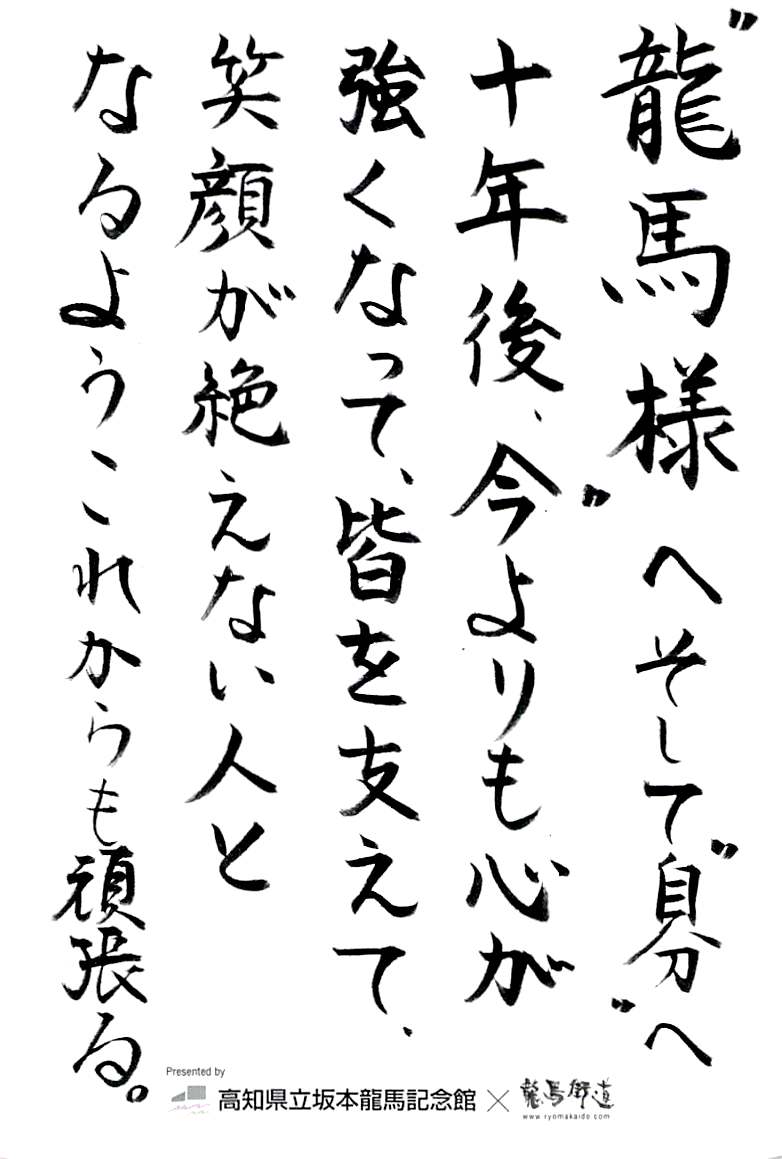 "龍馬様"へそして"自分"へ
十年後、今よりも心が
強くなって、皆を支えて、
笑顔が絶えない人と
なるようこれからも頑張る。
Presented by
高知県立坂本龍馬記念館×龍馬街道
www.ryomakaido.com